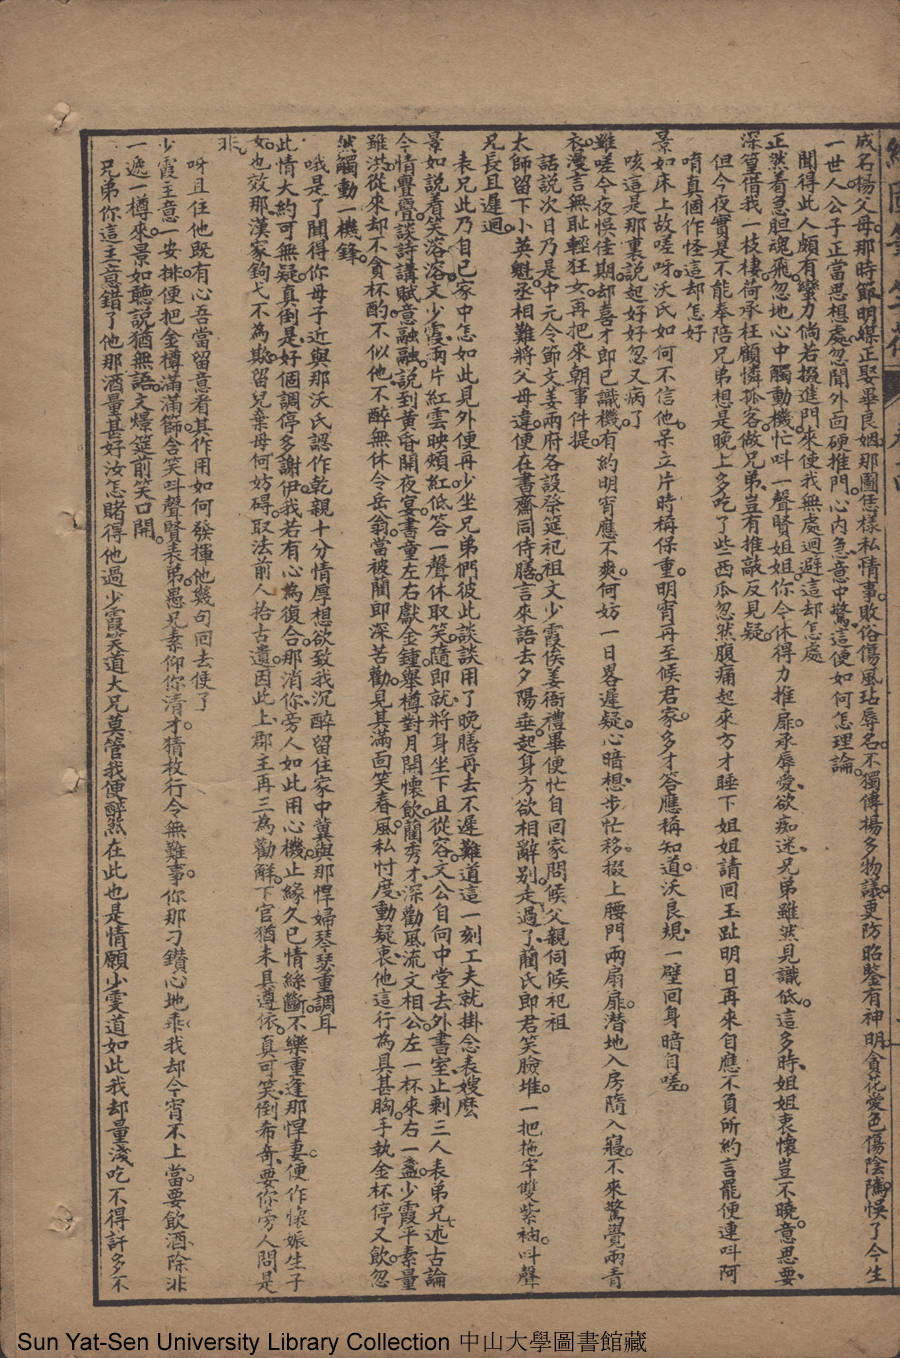 成石揚父母。那時節明媒正娶畢良姻那圖恁樣私情事。敗俗傷風玷辱名。不獨傳揚多物議。更防昭鑒有神明。貪花愛色傷陰隲。悞了今生
一世人公子正當思想處。忽聞外面硬推門。心內急意中驚這便如何怎理論。
聞得此人頗有蠻力倘若撥進門來使我無處迴避這却怎處
正然着急胆魂飛。忽地心中觸動機忙叫一聲賢姐姐。你今休得力推扉。承辱愛欲痴迷兄弟雖然見識低。這多時姐姐衷懷豈不曉意思要
深篁借我一枝棲荷承枉顧憐孤客。做兄弟豈有推敲反見疑。
但今夜實是不能奉陪兄弟想是晚上多吃了些西瓜忽然腹痛起來方才睡下姐姐請回玉趾明日再來自應不負所約言罷便連叫阿
唷真個作怪這却怎好
景如床上故嗟呀。沃氏如何不信他。呆立片時稱保重。明宵再至候君家。多才答應稱知道。沃良規一壁回身暗自嗟。
咳這是那裏說起好好忽又病了
雖嗟今夜悞佳期。却喜才郎已識機。有約明宵應不爽。何妨一日畧遲疑。心暗想步忙移。掇上腰門兩扇扉。潛地入房隋入寢。不來驚覺兩青
衣漫言無恥輕狂女。再把來朝事件提。
話說次日乃是中元令節文姜兩府各設祭筵祀祖文少霞俟姜衙禮畢便忙自回家問候父親伺候祀祖
太師留下小英魁。丞相難將父母違。便在書齋同侍膳。言來語去夕陽垂。起身方欲相辭別。走過了蘭氏郎君笑臉堆。一把拖牢雙紫袖。叫聲
兄長且遲迴。
表兄此乃自已家中怎如此見外便再少坐兄弟們彼此談談用了晚膳再去不遲難道這一刻工夫就掛念表嫂麽
景如說着笑溶溶。文少霞兩片紅雲映頰紅。低答一聲休取笑。隨即就將身坐下且從容。文公自向中堂去。外書室止剩三人表弟兄。述古論
今情疊疊。談詩講賦意融融。說到黃昏開夜宴。書童左右獻金鍾。舉樽對月開懷飲。蘭秀才深勸風流文相公。左一杯來右一盞。少霞平素量
雖洪。從來却不貪杯酌。不似他不醉無休令岳翁。當被蘭郎深苦勸。見其滿面笑春風。私忖度動疑衷。他這行為具甚胸。手執金杯停又飲。忽
然觸動一機鋒。
哦是了聞得你母子近與那沃氏認作乾親十分情厚想欲致我沉醉留住家中冀與那悍婦琴瑟重調耳
此情大約可無疑。真倒是好個調停多謝伊。我若有心為復合。那消你旁人如此用心機。止緣久已情絲斷。不樂重逢那悍妻。便作懷娠生子
女。也效那漢家鉤弋不為欺。留兒棄母何妨碍。取法前人拾古遺。因此上郡主再三為勸解。下官猶未具遵依。真可笑倒希奇。要你旁人問是
非。
呀且住他既有心吾當留意看其作用如何發揮他幾句回去便了
少霞主意一安排。便把金樽滿滿篩。含笑叫聲賢表弟。愚兄素仰你清才。猜枚行令無難事。你那刁鑽心地乖。我却今宵不上當。要飲酒除非
一遞一樽來。景如聽說猶無語。文燝筵前笑口開。
兄弟你這主意錯了他那酒量甚好汝怎賭得他過少霞笑道大兄莫管我便醉煞在此也是情願少雯道如此我却量淺吃不得許多不
Sun Yat-Sen University Library Collection 中山大學圖書館藏